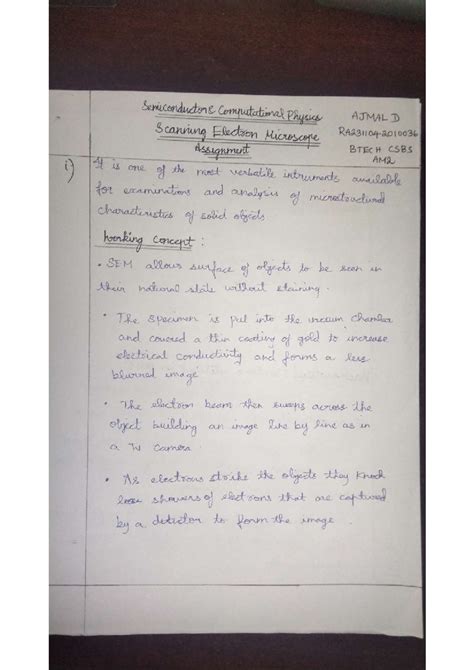 Semiconductor & Computational Physics
Scanning Electron Microscope
Assignment
AJMAL D
RA231104-2010036
BTECH CSBS
AM2
i) It is one of the most versatile intruments available
for examinations and analysis of microstructural
characteristics of solid objects
Working Concept :
• SEM allows surface of objects to be seen in
their natural state without staining.
• The specimen is put into the vaccum chamber
and covered a thin coating of gold to increase
electrical conductivity and forms a less
blurred image
• The electron beam then sweeps across the
object building an image line by line as in
a TV Camera
• As electrons strike the objects they knock
loose showers of electrons that are captured
by a detector to form the image .